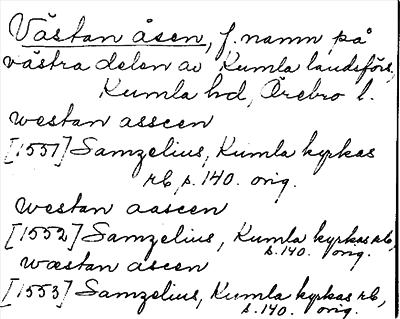 Västan åsen, f. namn på
västra delen av Kumla landsförs.,
Kumla hd, Örebro l.
westan asseen
[1551] Samzelius, Kumla kyrkas
rb, s. 140. orig.
westan aaseen
[1552] Samzelius, Kumla kyrkas rb,
s. 140. orig.
wæstan aseen
[1553] Samzelius, Kumla kyrkas rb,
s. 140. orig.